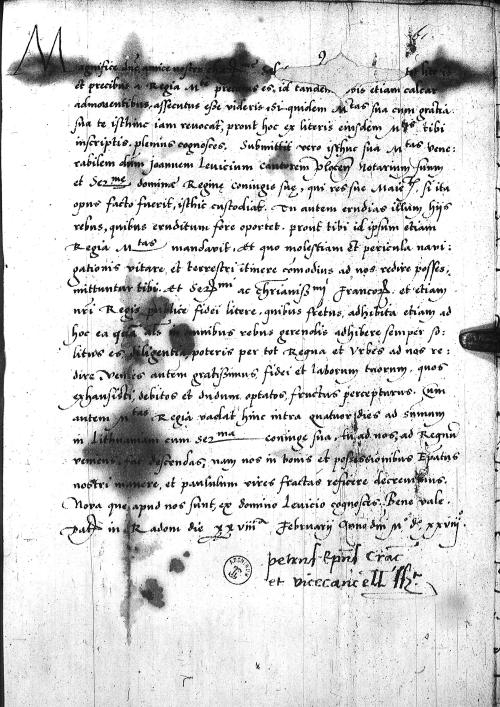 Magnifice dne amice noster
et precibus a Regia Mte precatus es, id tandem vobis etiam calcar
admoventibus, assecutus esse videris, siquidem Mtas sua cum gratia
sua te isthinc iam revocat, prout hoc ex literis eiusdem Mtis tibi
inscriptis plenius cognosces. Submittit vero isthuc sua Mtas vene:
rabilem dnm Joannem Levicium cantorem Plocen Notarium suum
et Serme domine Regine coniugis sue, qui res sue Maietis, si ita
opus facto fuerit, isthic custodiat. Tu autem erudias illum, hijs
rebus, quibus eruditum fore oportet. prout tibi id ipsum etiam
Regia Mtas mandavit. Et quo molestiam et pericula navi:
gationis vitare, et terrestri itinere comodius ad nos redire posses,
mittuntur tibi et Sermi ac Chrianissmi Francor. et etiam
nri Regis publice fidei litere, quibus fretus, adhibita etiam ad
hoc ea qua omnibus rebus gerendis adhibere semper so:
litus es, diligentia, poteris per tot Regna et Urbes ad nos re:
dire. Venies autem gratissimus, fidei et laborum tuorum, quos
exhausisti, debitos et dudum optatos, fructus percepturus. Cum
autem Mtas Regia vadat hinc intra quatuor dies ad summum
in Lithuaniam cum Serma coniuge sua, tu ad nos, ad Regnum
veniens, fac descendas, nam nos in bonis et possessionibus Epatus
nostri manere, et paululum vires fractas reficere decrevimus.
Nova que apud nos sunt, ex domino Levicio cognosces. Bene vale.
Dat in Radom die xxviiia Februarij Anno dni Mo Do xxviijo
petrus Epus Crac
et vicecancell